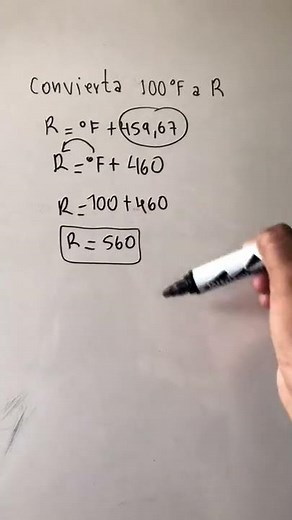 Convierta 100°F a R
R = °F + 459,67
R = °F + 460
R = 100 + 460
R = 560